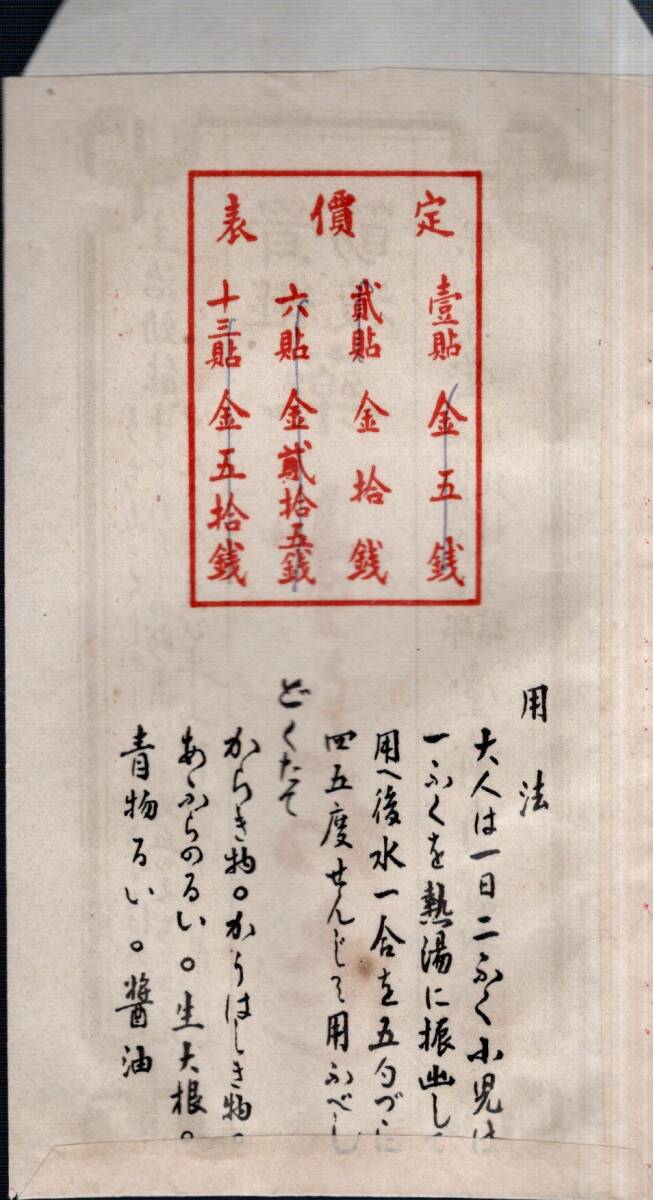 定價表
壹貼 金五錢
貳貼 金拾錢
六貼 金貳拾五錢
十三貼 金五拾錢
用法
大人は一日二ふく小児は
一ふくを熱湯に振出し
用へ後水一合を五勺づゝに
四五度せんじて用ふべし
どくたて
からき物。かうはしき物。
あぶらのるい。生大根。
青物るい。醬油